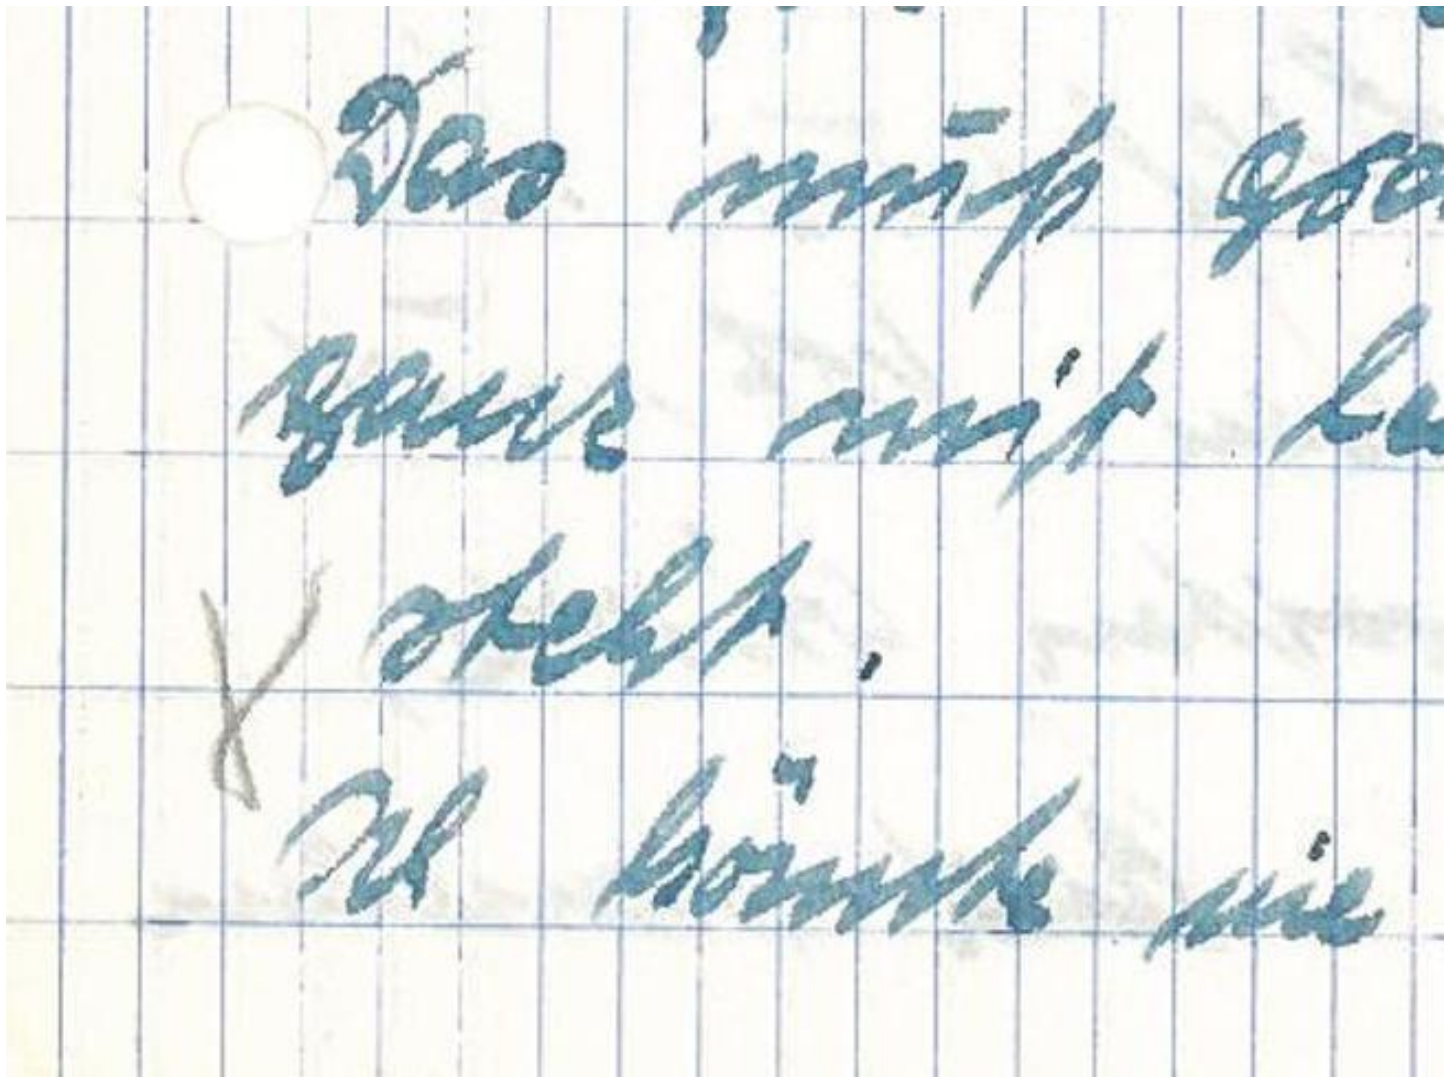 Das muß
ganz mit
steht.
Ich könnte nie